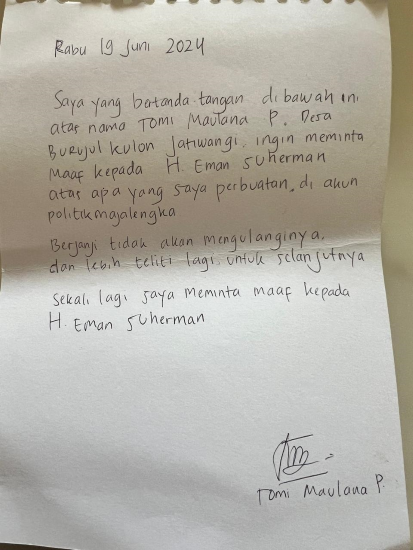 Rabu 19 Juni 2024
Saya yang batanda tangan dibawah ini
atas nama TOMI MAULANA P. Desa
BURUJUL KULON JATIWANGI, ingin meminta
Maaf kepada H. Eman SUHERMAN
atas apa yang saya perbuatan, di akun
politikmajalengka
Berjanji tidak akan mengulanginya,
dan lebih teliti lagi untuk selanjutnya
Sekali lagi saya meminta maaf kepada
H. Eman SUHERMAN
TOMI MAULANA P.